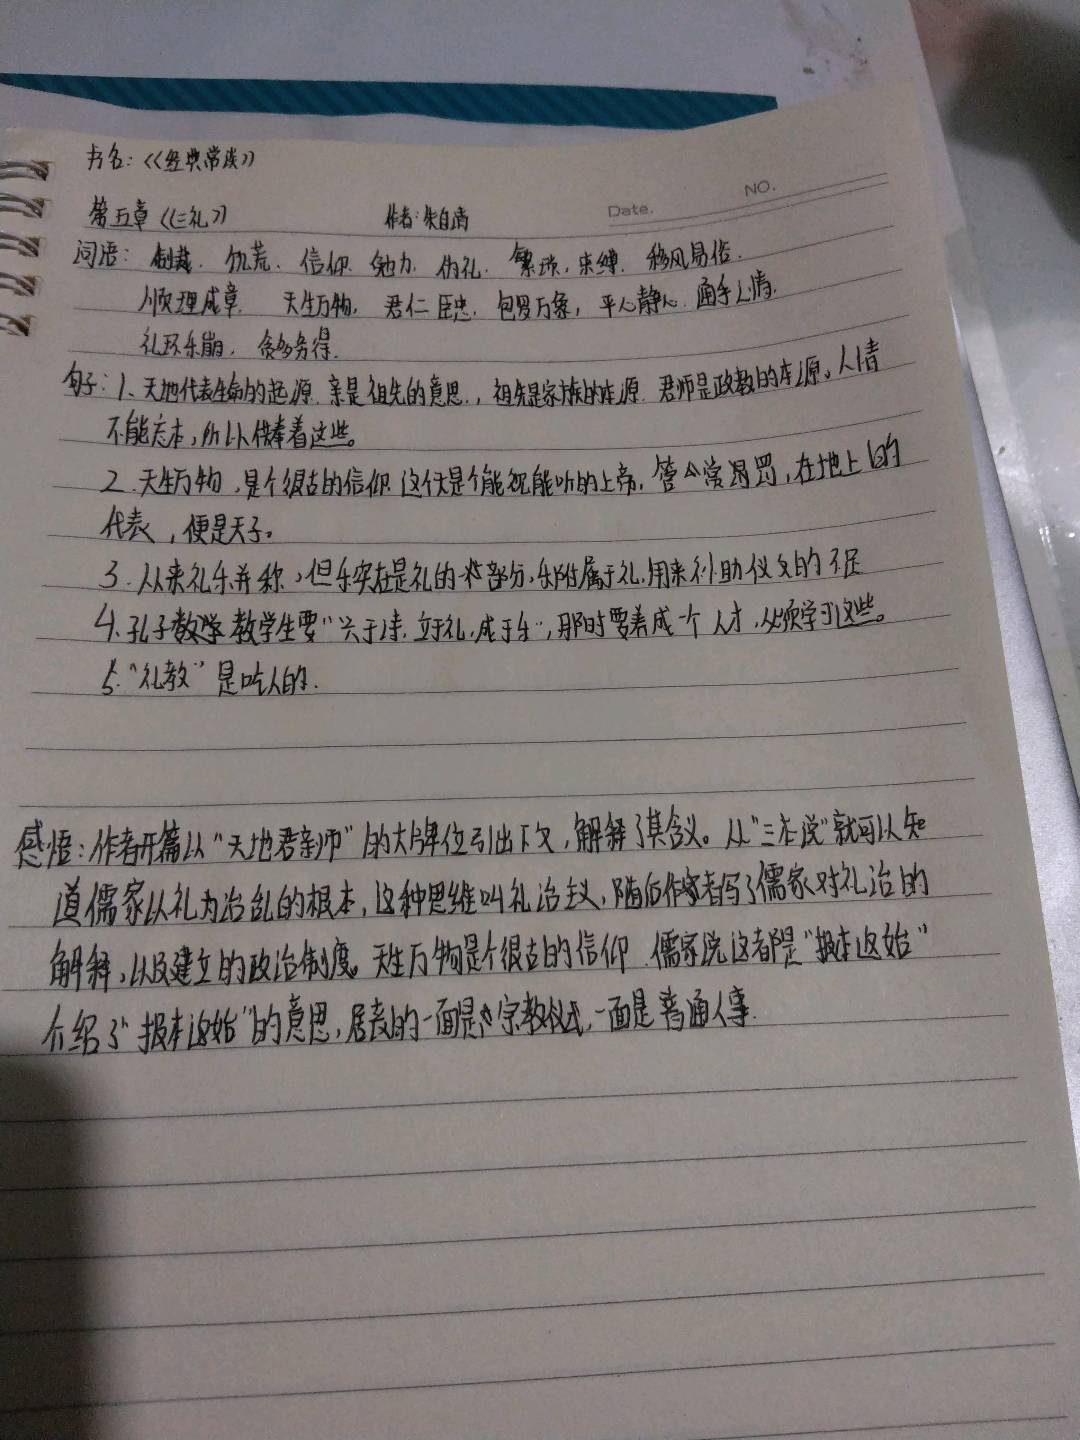 书名:《经典常谈》
NO.
第五章《三礼》 作者:朱自清 Date.
词语: 制裁. 饥荒. 信仰. 勉力. 仪礼. 繁琐. 束缚. 移风易俗.
顺理成章. 天生万物. 君仁臣忠. 包罗万象, 平心静心. 通乎人情.
礼环乐崩. 贪多务得.
句子:1、天地代表生命的起源.亲是祖先的意思.,祖先是家族的本源.君师是政教的本源。人情
不能忘本,所以供奉着这些。
2.天生万物,是个很古的信仰.这个天是个能视能听的上帝.管公赏罚,在地上的
代表,便是天子。
3.从来礼乐并称,但乐实在是礼的一部分,乐附属于礼.用来补助仪文的不足
4.孔子教学生要"兴于诗.立于礼.成于乐",那时要养成一个人才,必须学习这些。
5."礼教"是吃人的.
感悟:作者开篇以"天地君亲师"的大牌位引出下文,解释了其含义。从"三本说"就可以知
道儒家以礼为治乱的根本,这种思维叫礼治主义,随后作者写了儒家对礼治的
解释,以及建立的政治制度。天生万物是个很古的信仰.儒家说这都是"报本返始"
介绍了"报本返始"的意思,居丧的一面是宗教仪式,一面是普通人事.